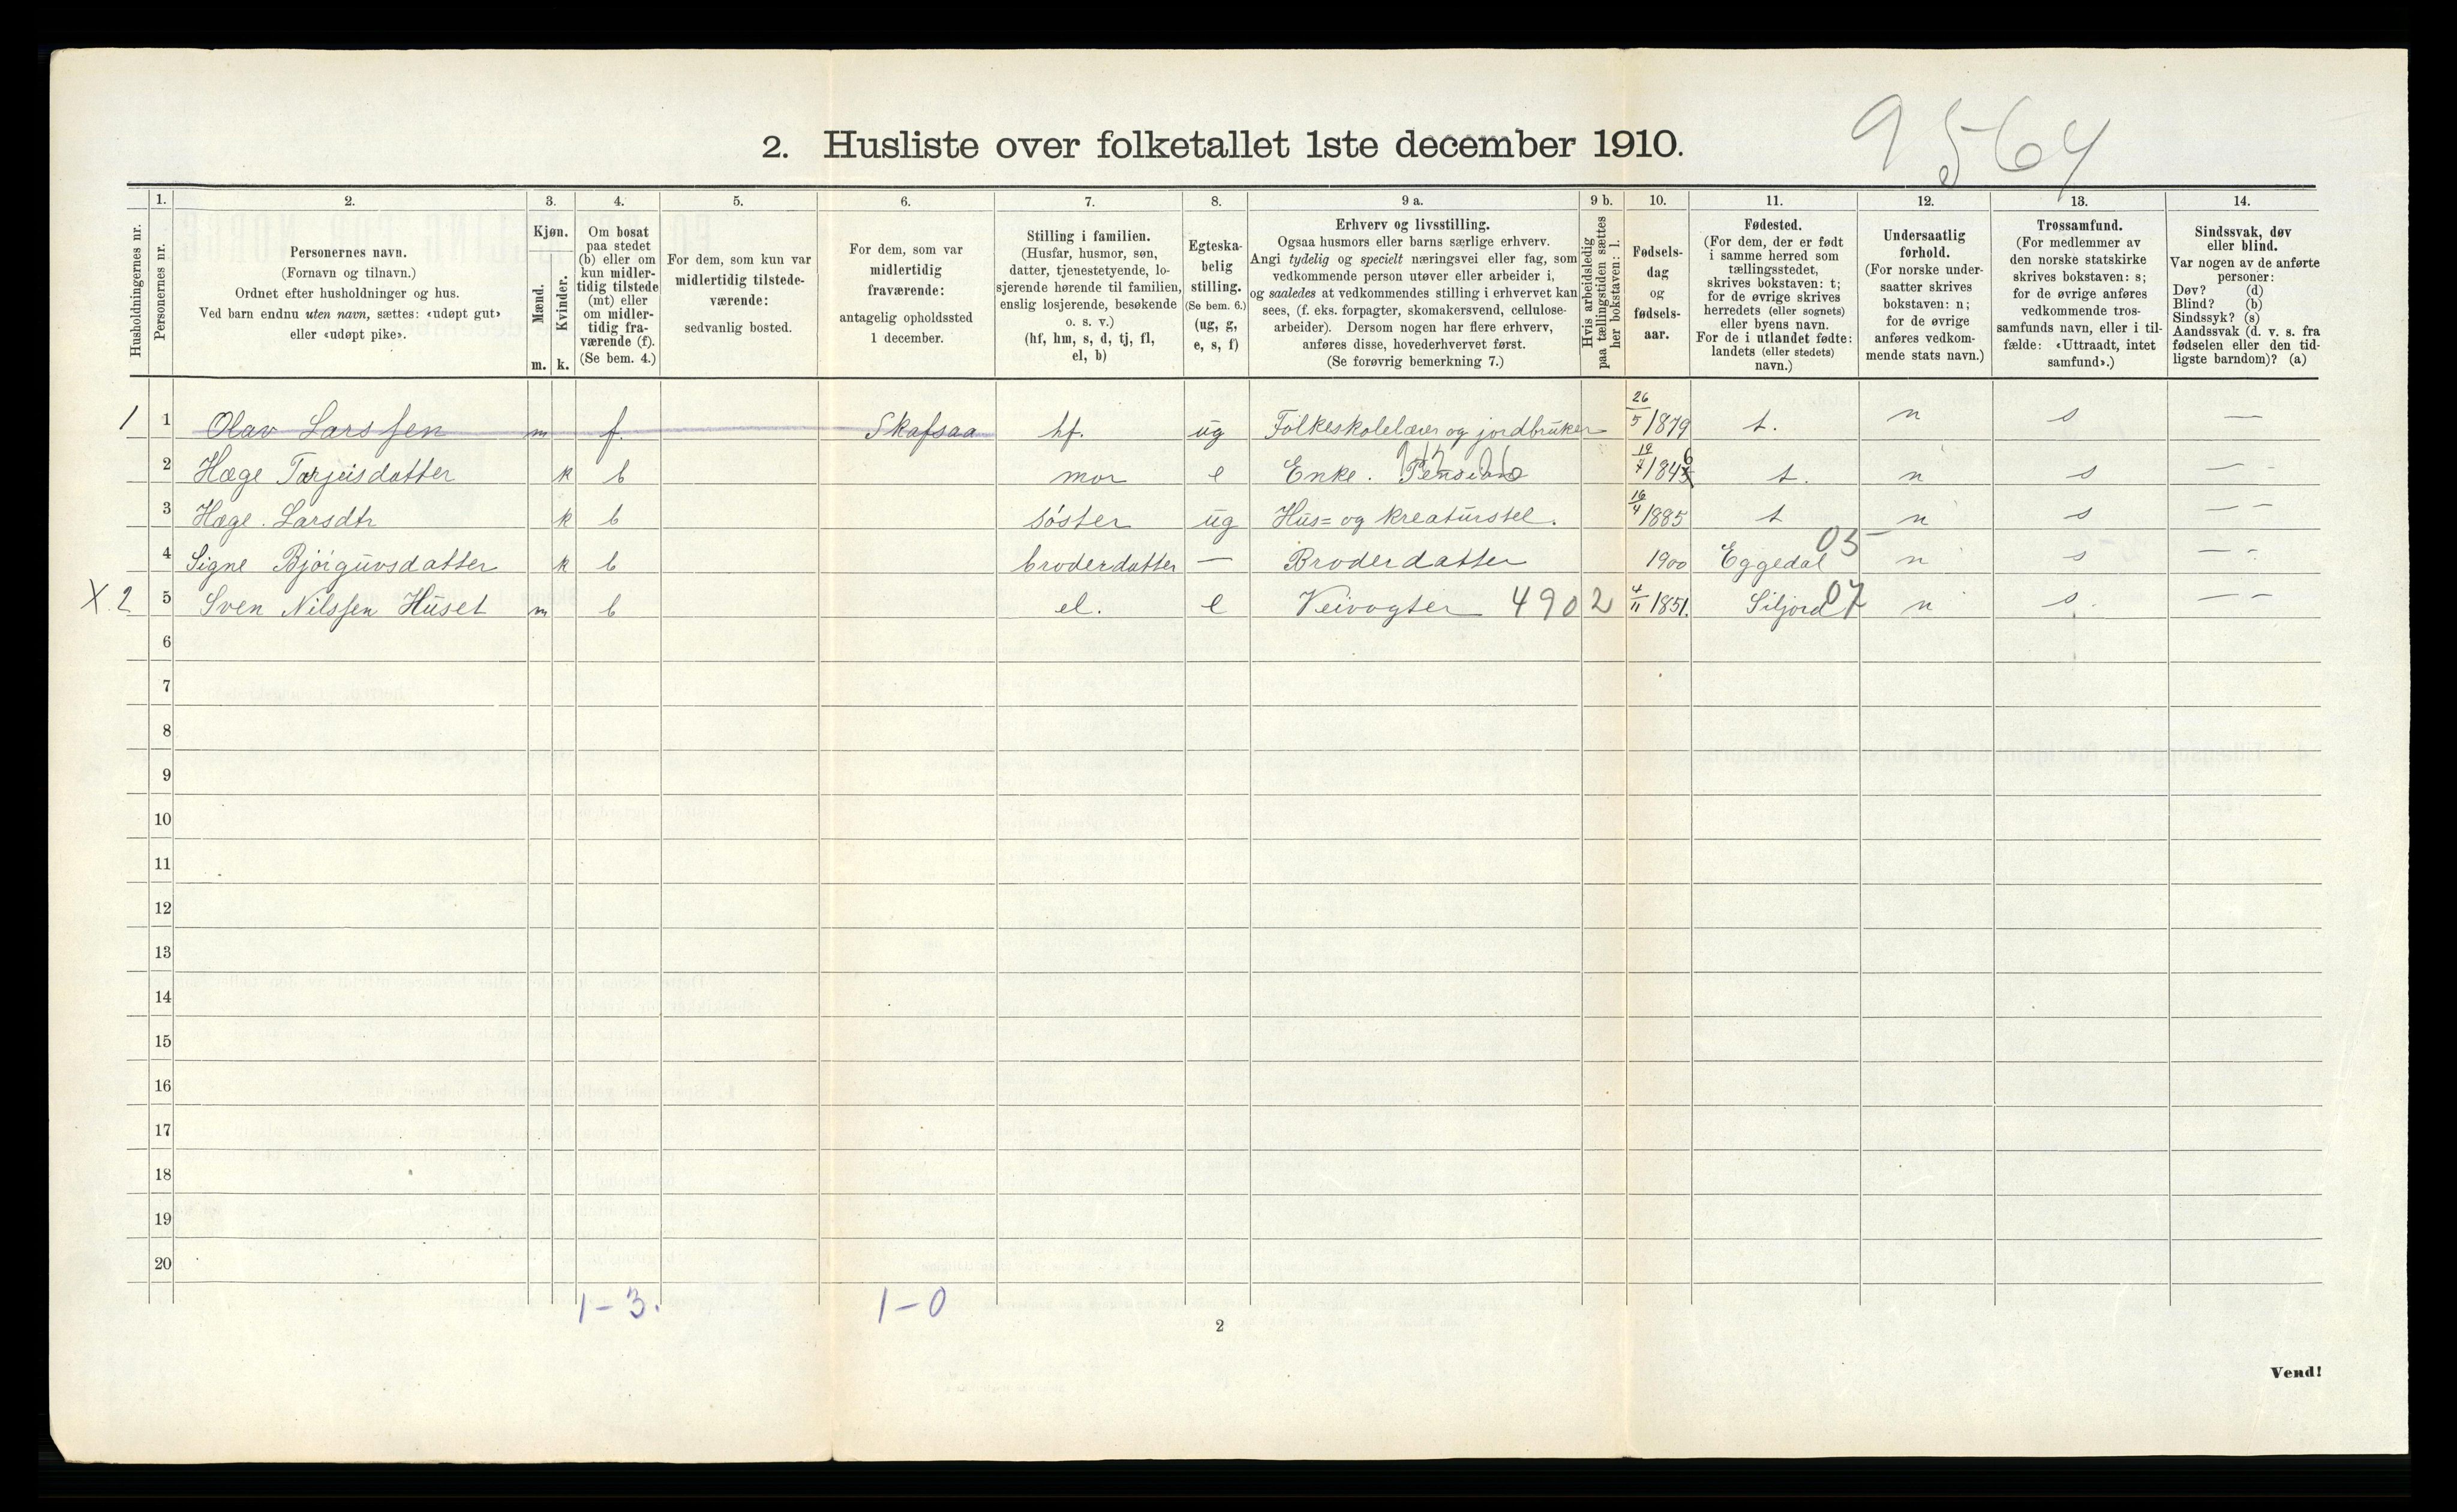 9 564
2. Husliste over folketallet 1ste december 1910.
Husholdningernes nr.
1. Personernes nr.
2. Personernes navn.
(Fornavn og tilnavn.)
Ordnet efter husholdninger og hus.
Ved barn endnu uten navn, sættes: «udøpt gut»
eller «udøpt pike».
3. Kjøn.
Mænd. m.
Kvinder. k.
4. Om bosat
paa stedet
(b) eller om
kun midler-
tidig tilstede
(mt) eller
om midler-
tidig fra-
værende (f).
(Se bem. 4.)
5. For dem, som kun var
midlertidig tilstede-
værende:
sedvanlig bosted.
6. For dem, som var
midlertidig
fraværende:
antagelig opholdssted
1 december.
7. Stilling i familien.
(Husfar, husmor, søn,
datter, tjenestetyende, lo-
sjerende hørende til familien,
enslig losjerende, besøkende
o. s. v.)
(hf, hm, s, d, tj, fl,
el, b)
8. Egteska-
belig
stilling.
(Se bem. 6.)
(ug, g,
e, s, f)
9 a. Erhverv og livsstilling.
Ogsaa husmors eller barns særlige erhverv.
Angi tydelig og specielt næringsvei eller fag, som
vedkommende person utøver eller arbeider i,
og saaledes at vedkommendes stilling i erhvervet kan
sees, (f. eks. forpagter, skomakersvend, cellulose-
arbeider). Dersom nogen har flere erhverv,
anføres disse, hovederhvervet først.
(Se forøvrig bemerkning 7.)
9 b. Hvis arbeidsledig
paa tællingstiden sættes
her bokstaven: l.
10. Fødsels-
dag
og
fødsels-
aar.
11. Fødested.
(For dem, der er født
i samme herred som
tællingsstedet,
skrives bokstaven: t;
for de øvrige skrives
herredets (eller sognets)
eller byens navn.
For de i utlandet fødte:
landets (eller stedets)
navn.)
12. Undersaatlig
forhold.
(For norske under-
saatter skrives
bokstaven: n;
for de øvrige
anføres vedkom-
mende stats navn.)
13. Trossamfund.
(For medlemmer av
den norske statskirke
skrives bokstaven: s;
for de øvrige anføres
vedkommende tros-
samfunds navn, eller i til-
fælde: «Uttraadt, intet
samfund».)
14. Sindssvak, døv
eller blind.
Var nogen av de anførte
personer:
Døv? (d)
Blind? (b)
Sindssyk? (s)
Aandssvak (d. v. s. fra
fødselen eller den tid-
ligste barndom)? (a)
1 1 Olav Larssen m f. Skafsaa hf. ug Folkeskolelærer og jordbruker 26/5 1879 t. n s —
2 Hæge Tarjeisdatter k b mor e Enke. Pension t. n s — -
3 Hæge. Larsdtr k b søster ug Hus= og kreaturstel. 16/4 1885 t n s — —
4 Signe Bjørguvsdatter k b broderdatter — Broderdatter 1900 Eggedal 03 n s — -
X. 2 5 Sven Nilssen Huset m b el. e Veivogter 4902 4/11 1851. Siljord 07 n s. — —
6
7
8
9
10
11
12
13
14
15
16
17
18
19
20
1 – 3. 1 – 0
2
Vend!